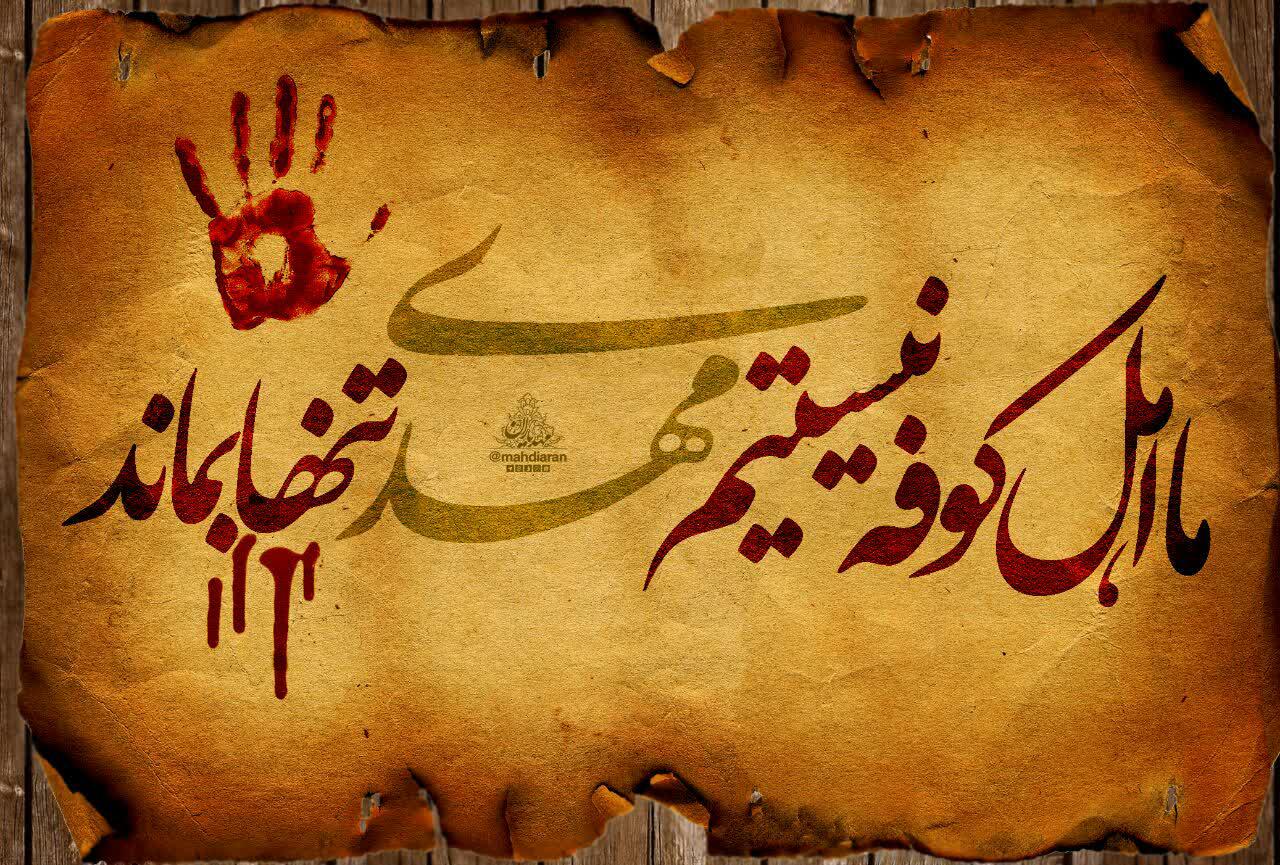 ما اهل کوفه نیستیم مهدی تنها بماند
@mahdiaran